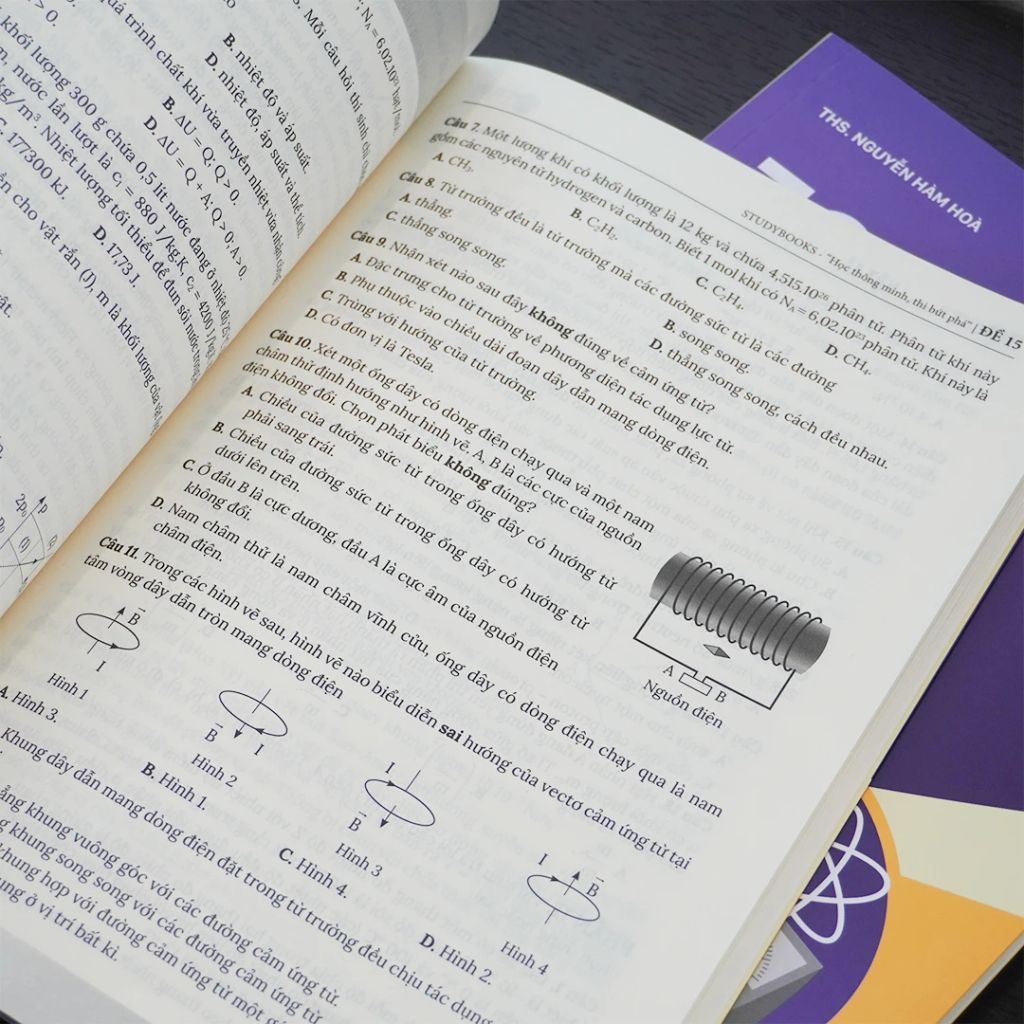 > 0.
khối lượng 300 g chứa 0,5 lít nước đang ở nhiệt độ
nước lần lượt là c₁ = 880 J/kg.K, c₂ = 4200 J/kg
kg/m³. Nhiệt lượng tối thiểu để đun sôi nước trong
C. 177300 kJ.
D. 17,73 J.
cho vật rắn (J), m là khối lượng của vật
N_A = 6,02.10²³ hạt/mol
Mỗi câu hỏi thí sinh chỉ
B. nhiệt độ và áp suất.
D. nhiệt độ, áp suất và thể tích.
quá trình chất khí vừa truyền nhiệt vừa nhận công
B. ΔU = Q; Q > 0.
D. ΔU = Q + A; Q > 0; A > 0.
STUDYBOOKS - "Học thông minh, thi bứt phá" | ĐỀ 15
Câu 7. Một lượng khí có khối lượng là 12 kg và chứa 4,515.10²⁶ phân tử. Phân tử khí này
gồm các nguyên tử hydrogen và carbon. Biết 1 mol khí có N_A = 6,02.10²³ phân tử. Khí này là
A. CH₃. B. C₂H₂. C. C₂H₄. D. CH₄.
Câu 8. Từ trường đều là từ trường mà các đường sức từ là các đường
A. thẳng. B. song song.
C. thẳng song song. D. thẳng song song, cách đều nhau.
Câu 9. Nhận xét nào sau đây không đúng về cảm ứng từ?
A. Đặc trưng cho từ trường về phương diện tác dụng lực từ.
B. Phụ thuộc vào chiều dài đoạn dây dẫn mang dòng điện.
C. Trùng với hướng của từ trường.
D. Có đơn vị là Tesla.
Câu 10. Xét một ống dây có dòng điện chạy qua và một nam
châm thử định hướng như hình vẽ. A, B là các cực của nguồn
điện không đổi. Chọn phát biểu không đúng?
A. Chiều của đường sức từ trong ống dây có hướng từ
phải sang trái.
B. Chiều của đường sức từ trong ống dây có hướng từ
dưới lên trên.
C. Ở đầu B là cực dương, đầu A là cực âm của nguồn điện
không đổi.
D. Nam châm thử là nam châm vĩnh cửu, ống dây có dòng điện chạy qua là nam
châm điện.
A B
Nguồn điện
Câu 11. Trong các hình vẽ sau, hình vẽ nào biểu diễn sai hướng của vectơ cảm ứng từ tại
tâm vòng dây dẫn tròn mang dòng điện
B I
Hình 1
B I
Hình 2
I B
Hình 3
I B
Hình 4
A. Hình 3. B. Hình 1. C. Hình 4. D. Hình 2.
Khung dây dẫn mang dòng điện đặt trong từ trường đều chịu tác dụng
khung vuông góc với các đường cảm ứng từ.
khung song song với các đường cảm ứng từ.
khung hợp với đường cảm ứng từ một
ở vị trí bất kì.
THS. NGUYỄN HÀM HOÀ